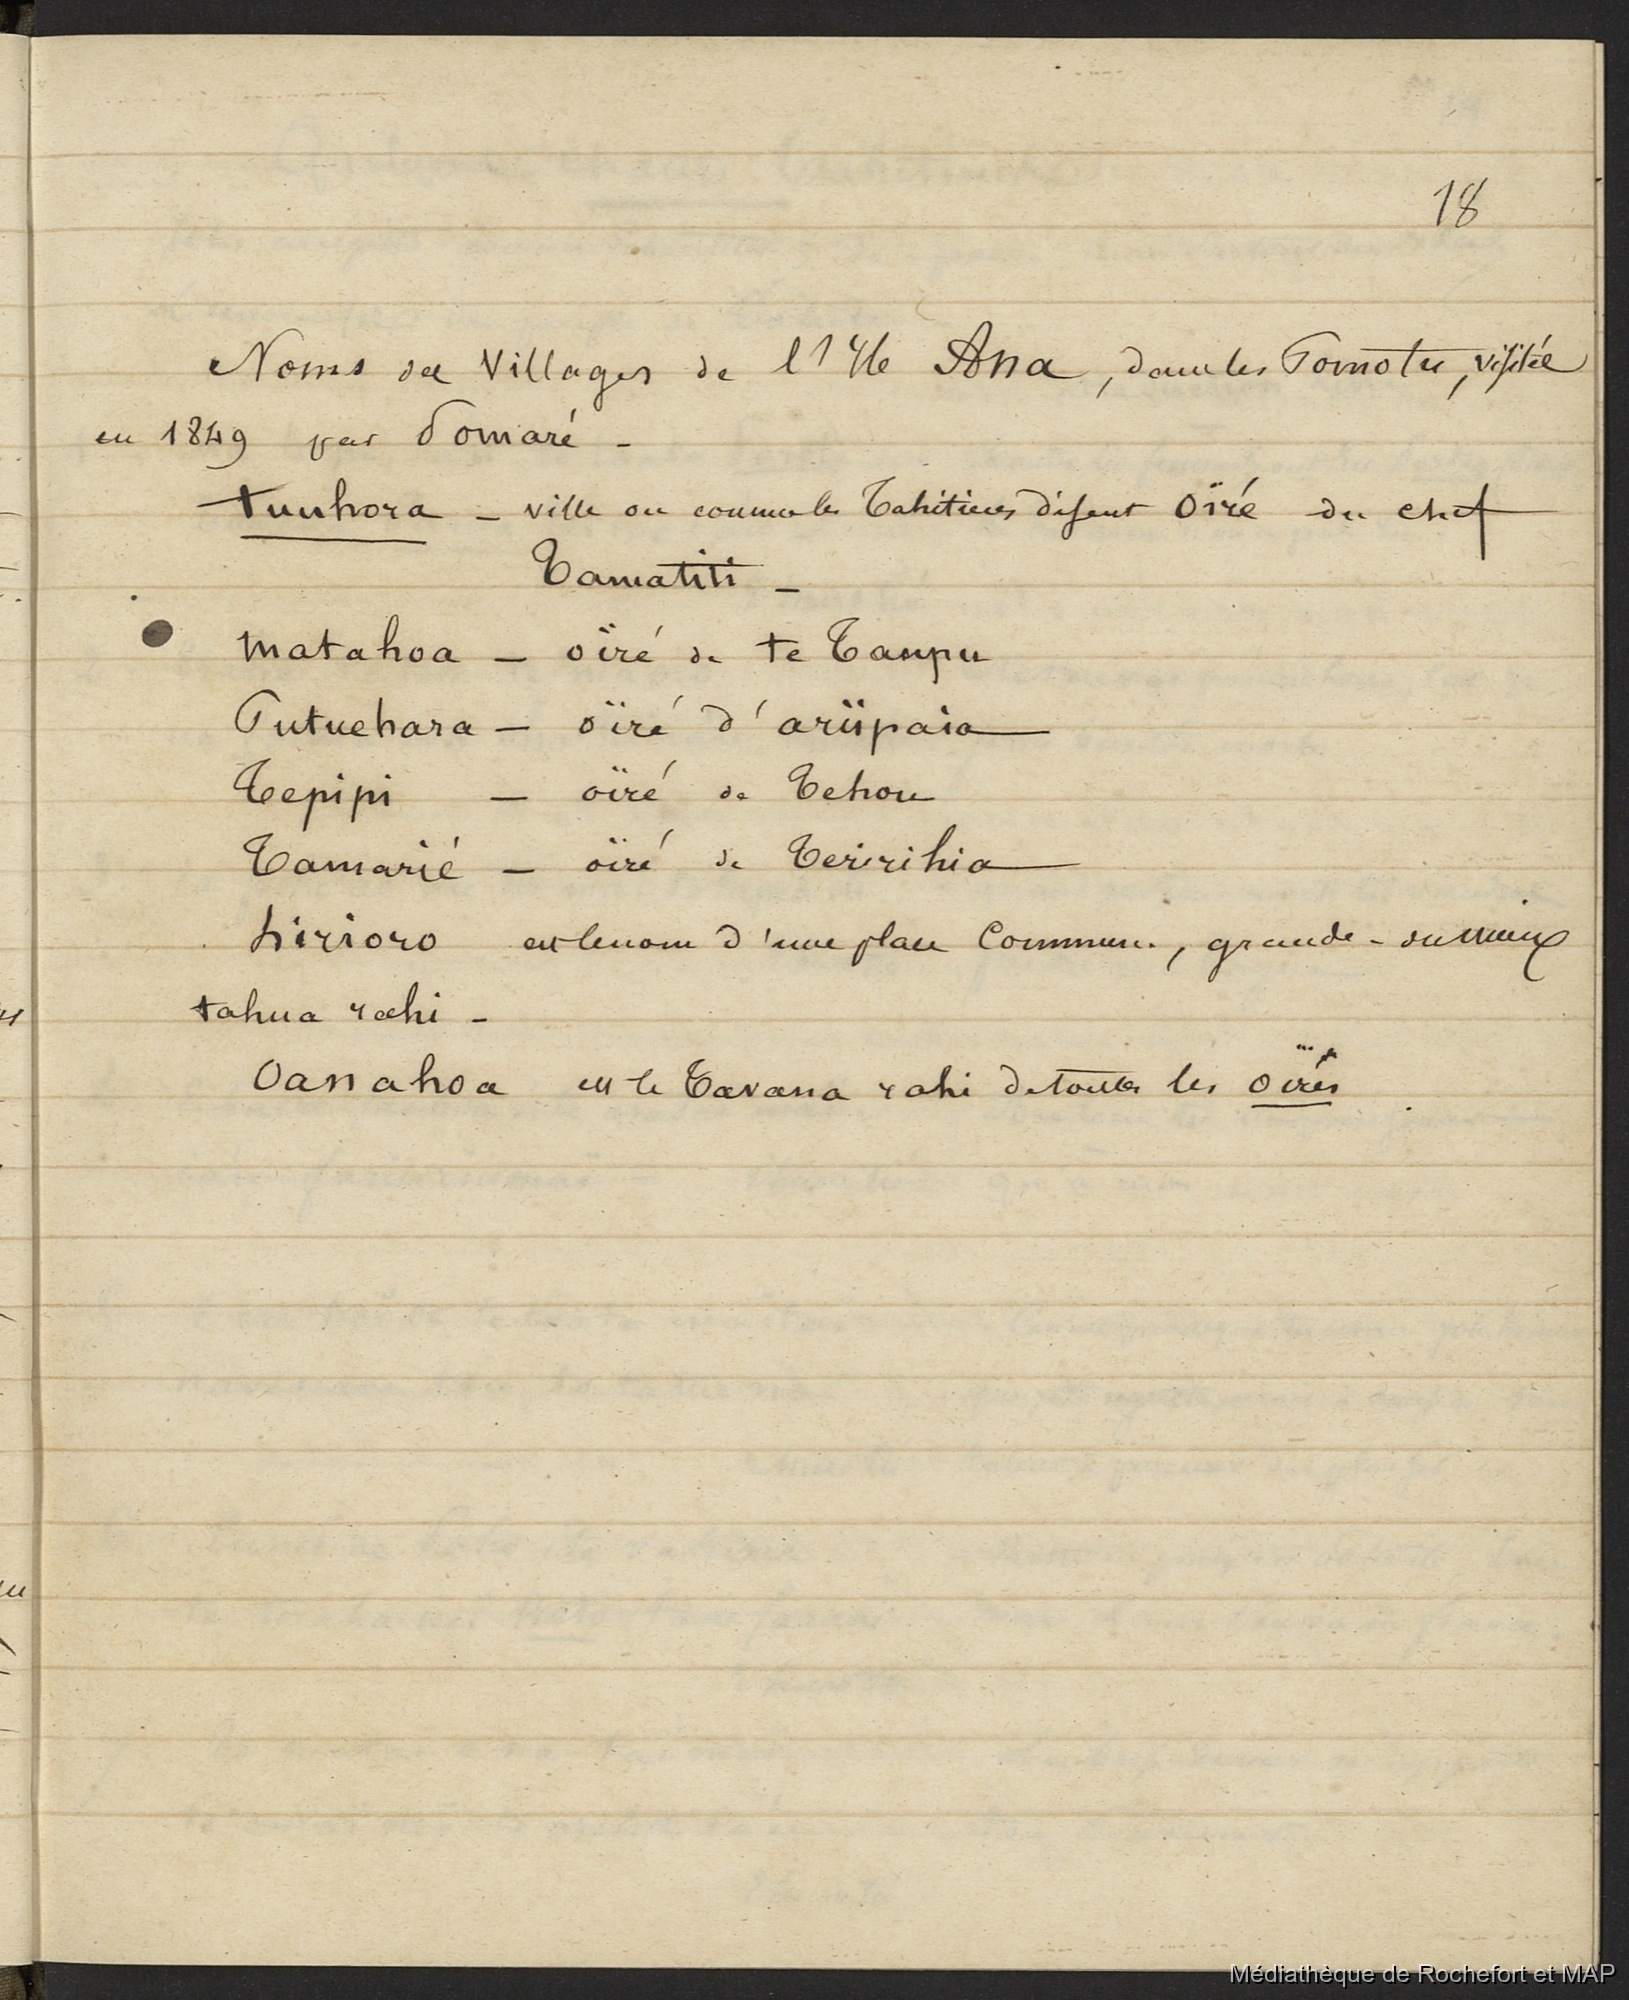 18
Noms des Villages de l'Ile Ana, dans les Pomotu, visitée
en 1849 par Pomaré -
tuuhora - ville ou comme les Tahitiens disent oïré du chef
Tamatiti -
matahoa - oïré de te Taupu
Putuehara - oïré d'ariipaia
Tepipi - oïré de Tehou
Tamarié - oïré de Teririhia
hirioro est le nom d'une place Commune, grande - ou mieux
tahua rahi -
Oanahoa est le Tavana rahi de toutes les oïrés.
Médiathèque de Rochefort et MAP